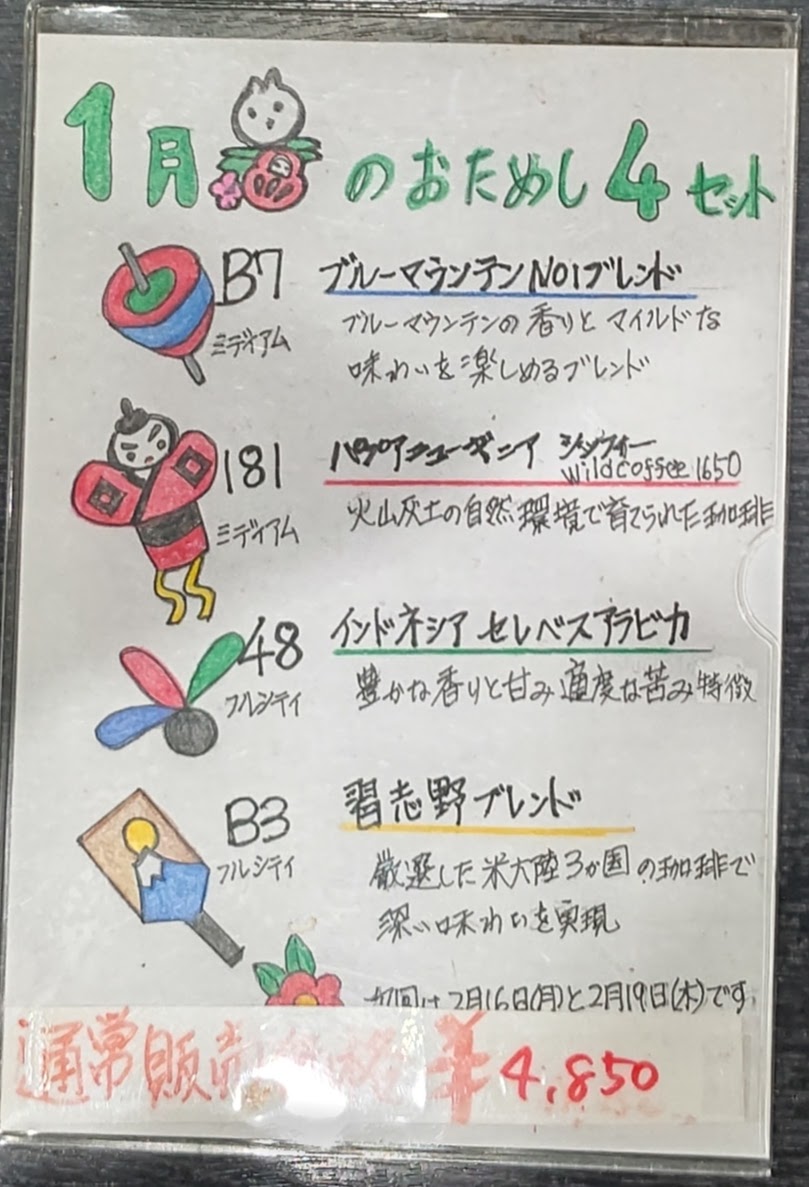 1月のおためし4セット
B7 ブルーマウンテンNO1ブレンド
ミディアム
ブルーマウンテンの香りとマイルドな
味わいを楽しめるブレンド
181 パプアニューギニア シグリ
Wildcoffee 1650
ミディアム
火山灰土の自然環境で育てられた珈琲
48 インドネシア セレベスアラビカ
フルシティ
豊かな香りと甘み適度な苦み特徴
B3 習志野ブレンド
フルシティ
厳選した米大陸3か国の珈琲で
深い味わいを実現
次回は2月16日(月)と2月19日(木)です
通常販売価格 ¥4,850